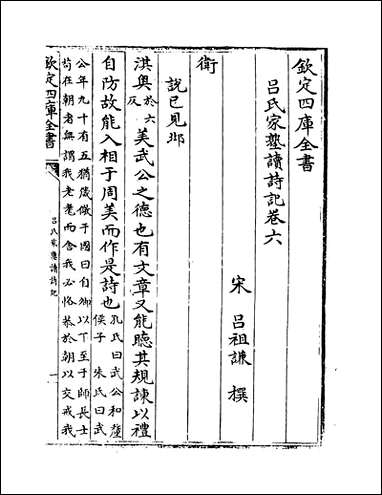 欽定四庫全書
呂氏家塾讀詩記卷六
宋 呂祖謙 撰
衛
說已見邶
淇奥於六反美武公之德也有文章又能聽其規諫以禮
自防故能入相于周美而作是詩也孔氏曰武公和釐侯子 朱氏曰武
公年九十有五猶箴儆于國曰自卿以下至于師長士
苟在朝者無謂我老耄而舍我必恪恭於朝以交戒我
欽定四庫全書
呂氏家塾讀詩記
一